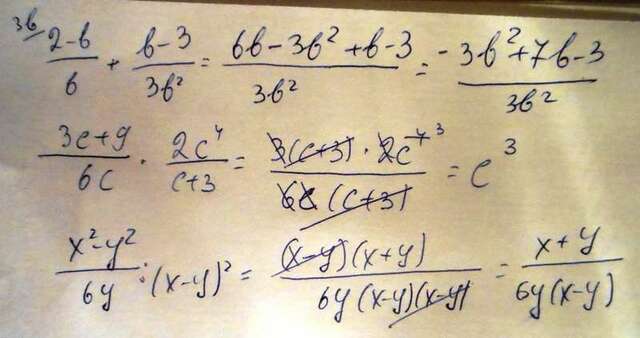 3b/ (2-b)/b + (b-3)/3b² = (6b-3b²+b-3)/3b² = (-3b²+7b-3)/3b²
(3c+9)/6c · 2c⁴/(c+3) = (3(c+3)·2c⁴ ³)/(6c(c+3)) = c³
(x²-y²)/6y : (x-y)² = ((x-y)(x+y))/(6y(x-y)(x-y)) = (x+y)/(6y(x-y))